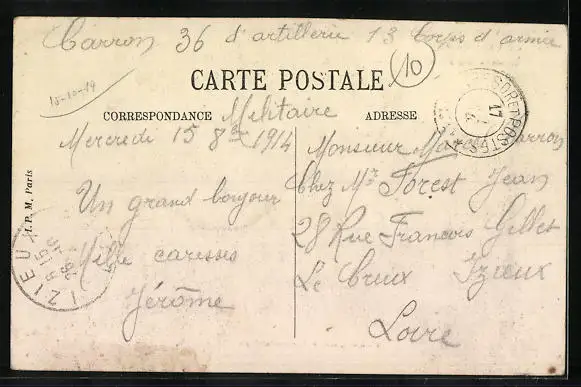 Carron 36 d'artillerie 13 Corps d'armée
10
15-10-14
CARTE POSTALE
Militaire
CORRESPONDANCE
ADRESSE
Mercredi 15 8bre 1914
Un grand bonjour
Mille caresses
Jérôme
Monsieur Marcel Carron
Chez Mr Forest Jean
28 Rue Francois Gillet
Le Creux Izieux
Loire
I. P. M. Paris
IZIEUX
TRESOR ET POSTES
17